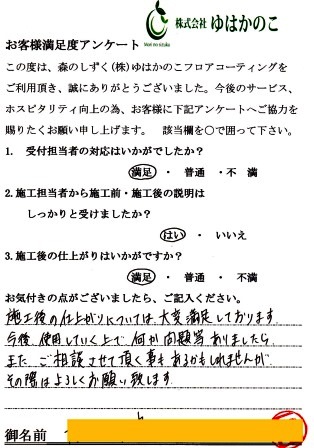 株式会社 ゆはかのこ
Mori no sizuku
お客様満足度アンケート
この度は、森のしずく(株)ゆはかのこフロアコーティングを
ご利用頂き、誠にありがとうございました。今後のサービス、
ホスピタリティ向上の為、お客様に下記アンケートへご協力を
賜りたくお願い申し上げます。 該当欄を○で囲って下さい。
1. 受付担当者の対応はいかがでしたか?
満足 ・ 普通 ・不 満
2.施工担当者から施工前・施工後の説明は
しっかりと受けましたか?
はい ・ いいえ
3.施工後の仕上がりはいかがですか?
満足 ・ 普通 ・ 不満
お気付きの点がございましたら、ご記入ください。
施工後の仕上がりについては、大変満足しております
今後、使用していく上で何か問題等ありましたら、
また、ご相談させて頂く事もあるかもしれませんが、
その際はよろしくお願い致します。
御名前